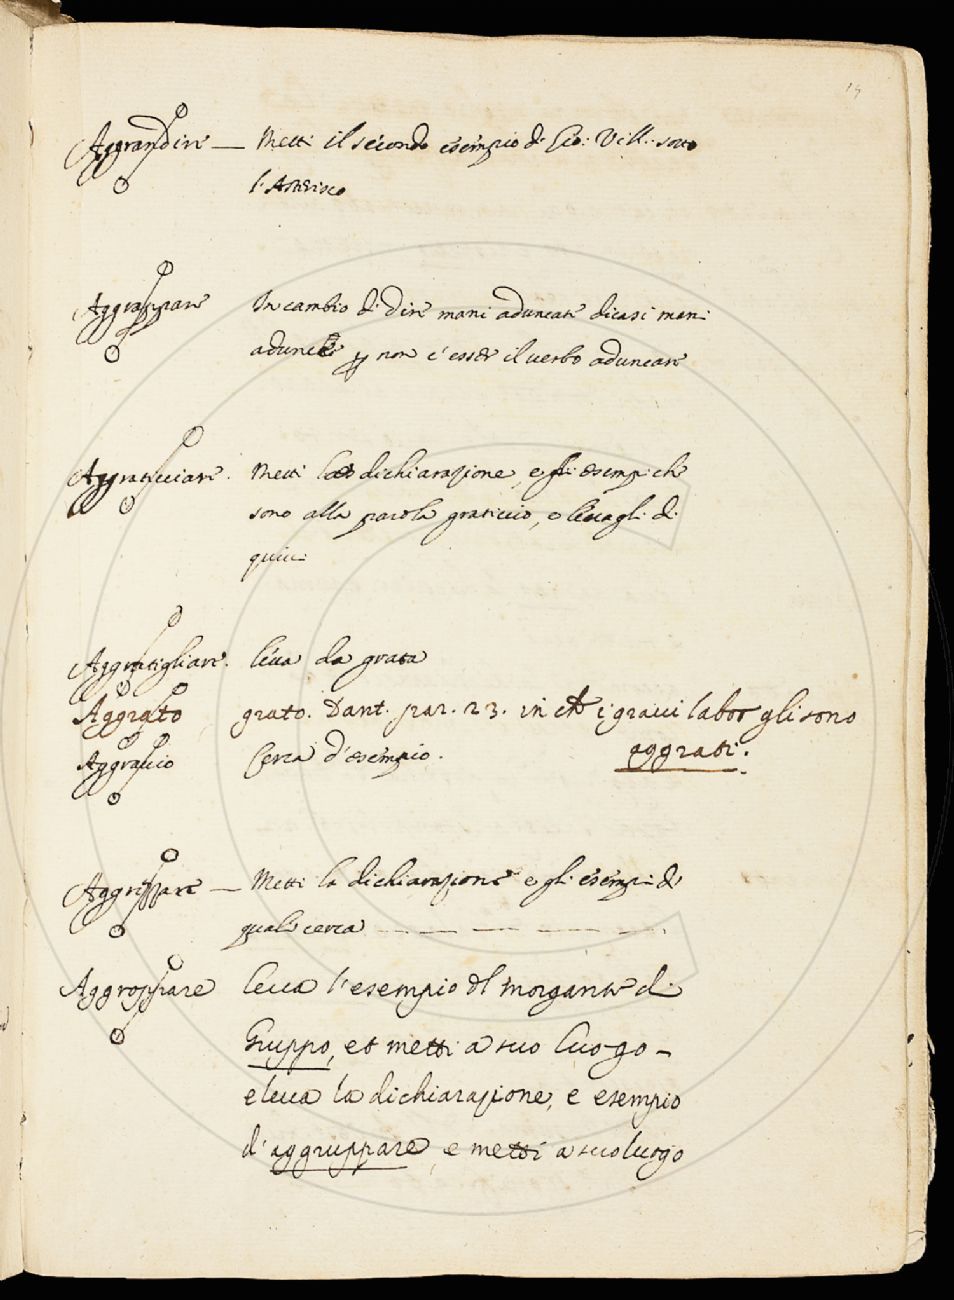 19
Aggrandire — Metti il secondo esempio di Gio: Vill: sotto
l'Asterisco
Aggrappare In cambio di dire mani aduncate dicasi mani
adunche non c'esser il verbo aduncare
Aggraticciare. Metti la dichiarazione, e gli esempi che
sono alla parola graticcio, o levagli di
quivi
Aggratigliare. leva da grata
Aggrato grato. Dant. par. 23. in che i gravi labor gli sono
aggrati.
Aggravio Cerca d'esempio.
Aggrappare — Metti la dichiarazione e gli esempi di
quali cerca — — — — —.
Aggroppare Leva l'esempio del morgante di
Gruppo, et metti a suo luogo –
e leva la dichiarazione, e esempio
d'aggruppare, e metti a suo luogo